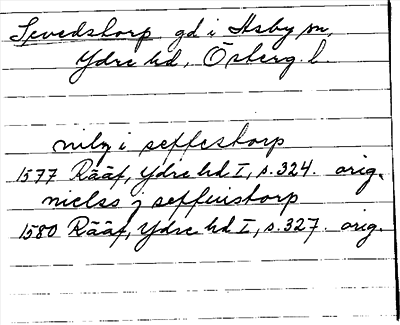 Sevedstorp gd i Asby sn,
Ydre hd, Österg. l.
nilz i seffestorp
1577 Rääf, Ydre hd I, s. 324. orig.
nielss j seffuistorp
1580 Rääf, Ydre hd I, s. 327. orig.